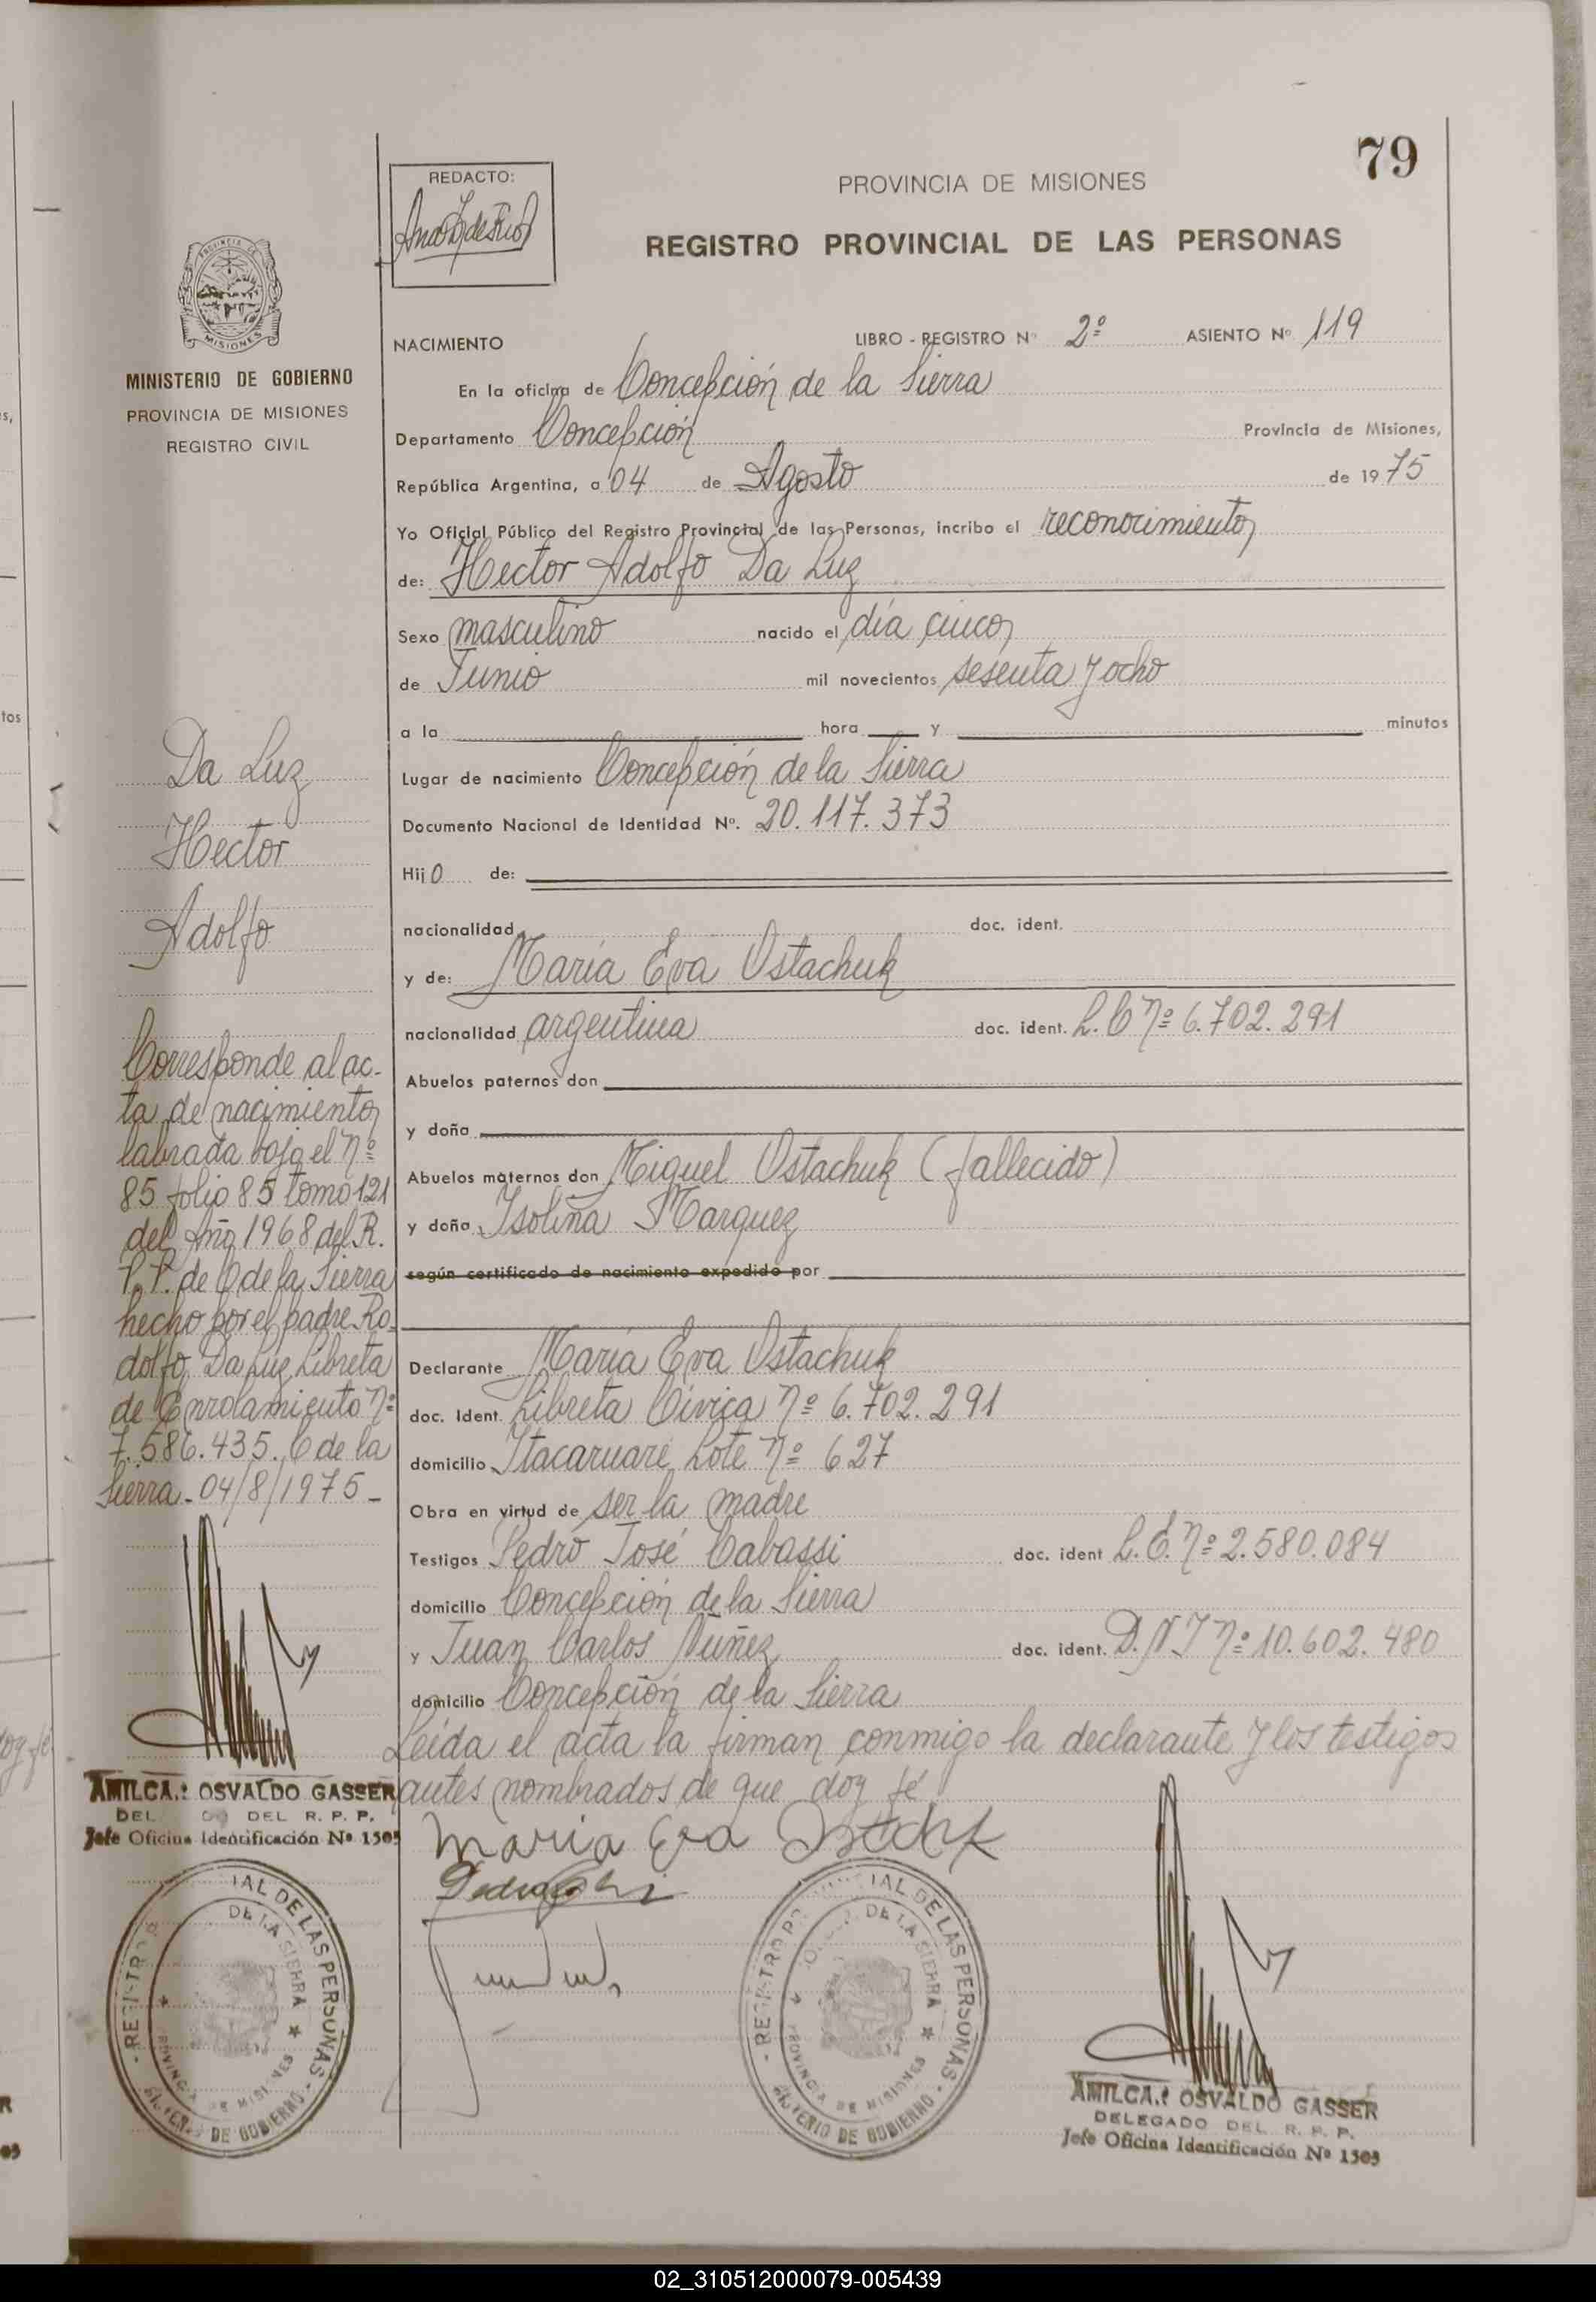 79
REDACTO:
PROVINCIA DE MISIONES
REGISTRO PROVINCIAL DE LAS PERSONAS
PROVINCIA DE
MISIONES
MINISTERIO DE GOBIERNO
PROVINCIA DE MISIONES
REGISTRO CIVIL
NACIMIENTO LIBRO - REGISTRO Nº 2º ASIENTO Nº 119
En la oficina de Concepción de la Sierra
Departamento Concepción Provincia de Misiones,
República Argentina, a 04 de Agosto de 1975
Yo Oficial Público del Registro Provincial de las Personas, incribo el reconocimiento
de: Hector Adolfo Da Luz
Sexo masculino nacido el día cinco
de Junio mil novecientos sesenta y ocho
a la hora y minutos
Lugar de nacimiento Concepción de la Sierra
Documento Nacional de Identidad Nº. 20.117.373
Hijo de:
nacionalidad doc. ident.
y de: María Eva Ostachuk
nacionalidad argentina doc. ident. L.C Nº 6.702.291
Abuelos paternos don
y doña
Abuelos maternos don Miguel Ostachuk (fallecido)
y doña Isolina Marquez
según certificado de nacimiento expedido por
Declarante María Eva Ostachuk
doc. Ident. Libreta Cívica Nº 6.702.291
domicilio Itacaruaré Lote Nº 627
Obra en virtud de ser la madre
Testigos Pedro José Cabassi doc. ident L.E. Nº 2.580.084
domicilio Concepción de la Sierra
y Juan Carlos Núñez doc. ident. D.N I Nº 10.602.480
domicilio Concepción de la Sierra
Leída el acta la firman conmigo la declarante y los testigos
antes nombrados de que doy fé
Maria Eva
Da Luz
Hector
Adolfo
Corresponde al ac-
ta de nacimiento
labrada bajo el Nº
85 folio 85 tomo 121
del Año 1968 del R.
P.P. de C de la Sierra
hecho por el padre Ro-
dolfo Da Luz Libreta
de Enrolamiento Nº
7.586.435. C de la
Sierra - 04/8/1975 -
AMILCAR OSVALDO GASSER
DEL DEL R. P. P.
Jefe Oficina Identificación Nº 1505
IAL DE LAS PERSONAS
DE LA SIERRA
PROVINCIA DE MISIONES
DE GOBIERNO
IAL DE LAS PERSONAS
DE LA SIERRA
PROVINCIA DE MISIONES
DE GOBIERNO
AMILCAR OSVALDO GASSER
DELEGADO DEL R. P. P.
Jefe Oficina Identificación Nº 1505
02_310512000079-005439